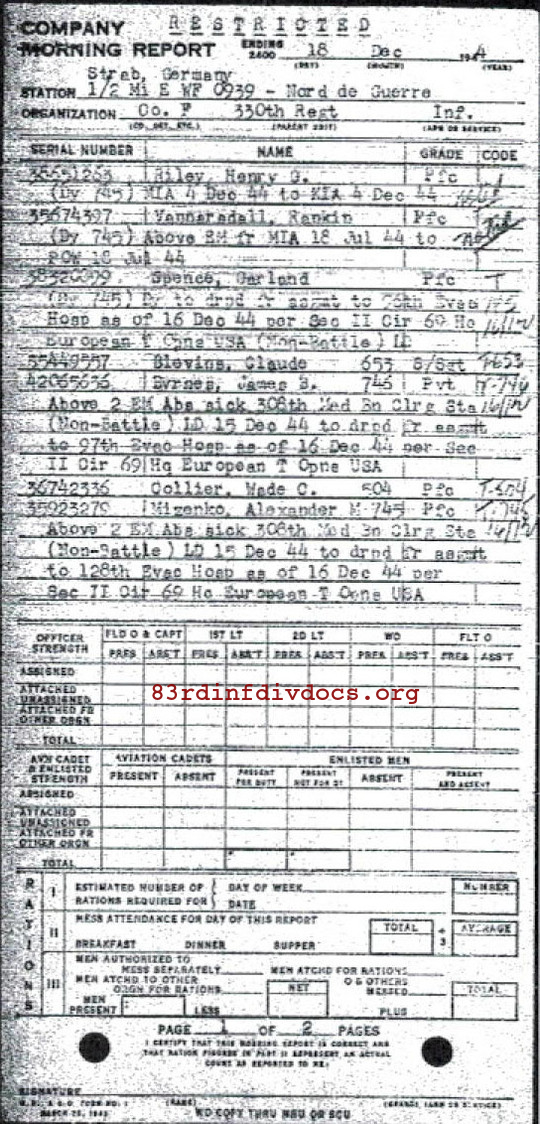 RESTRICTED
COMPANY
MORNING REPORT ENDING 2400 18 Dec 1944
(DAY) (MONTH) (YEAR)
Straß, Germany
STATION 1/2 Mi E WF 0939 - Nord de Guerre
ORGANIZATION Co. F 330th Regt Inf.
(CO., DET., ETC.) (PARENT UNIT) (ARM OR SERVICE)
SERIAL NUMBER NAME GRADE CODE
Riley, Henry G. Pfc
(Dy 745) MIA 4 Dec 44 to KIA 4 Dec 44
35674397 Vannarsdall, Rankin Pfc
(Dy 745) Above EM fr MIA 18 Jul 44 to
POW 18 Jul 44
Spence, Garland Pfc T
(Dy 745) Dy to drpd fr assmt to Evac
Hosp as of 16 Dec 44 per Sec II Cir 69 Hq
European T Opns USA (Non-Battle) LD
Blevins, Claude 653 S/Sgt T-653
James S. 746 Pvt
Above 2 EM Abs sick 308th Med Bn Clrg Sta
(Non-Battle) LD 15 Dec 44 to drpd fr assmt
to 97th Evac Hosp as of 16 Dec 44 per Sec
II Cir 69 Hq European T Opns USA
36742336 Collier, Wade C. 504 Pfc T-504
35923279 Mizenko, Alexander M 745 Pfc T-745
Above 2 EM Abs sick 308th Med Bn Clrg Sta
(Non-Battle) LD 15 Dec 44 to drpd fr assmt
to 128th Evac Hosp as of 16 Dec 44 per
Sec II Cir 69 Hq European T Opns USA
OFFICER STRENGTH FLD O & CAPT 1ST LT 2D LT WO FLT O
PRES ABS'T PRES ABS'T PRES ABS'T PRES ABS'T PRES ABS'T
ASSIGNED
ATTACHED UNASSIGNED
ATTACHED FR OTHER ORGN
TOTAL
83rdinfdivdocs.org
AVN CADET & ENLISTED STRENGTH AVIATION CADETS ENLISTED MEN
PRESENT ABSENT PRESENT FOR DUTY PRESENT NOT FOR DY ABSENT PRESENT AND ABSENT
ASSIGNED
ATTACHED UNASSIGNED
ATTACHED FR OTHER ORGN
TOTAL
RATIONS
I ESTIMATED NUMBER OF DAY OF WEEK NUMBER
RATIONS REQUIRED FOR DATE
II MESS ATTENDANCE FOR DAY OF THIS REPORT TOTAL ÷ 3 AVERAGE
BREAKFAST DINNER SUPPER
III MEN AUTHORIZED TO MESS SEPARATELY MEN ATCHD FOR RATIONS
MEN ATCHD TO OTHER ORGN FOR RATIONS NET O & OTHERS MESSED TOTAL
MEN PRESENT LESS PLUS
PAGE 1 OF 2 PAGES
I CERTIFY THAT THIS MORNING REPORT IS CORRECT AND
THAT RATION FIGURES IN PART II REPRESENT AN ACTUAL
COUNT AS REPORTED TO ME:
SIGNATURE
W.D., A.G.O. FORM NO. 1 (NAME) (GRADE) (ARM OR SERVICE)
MARCH 25, 1943 NO COPY THRU MRU OR SCU